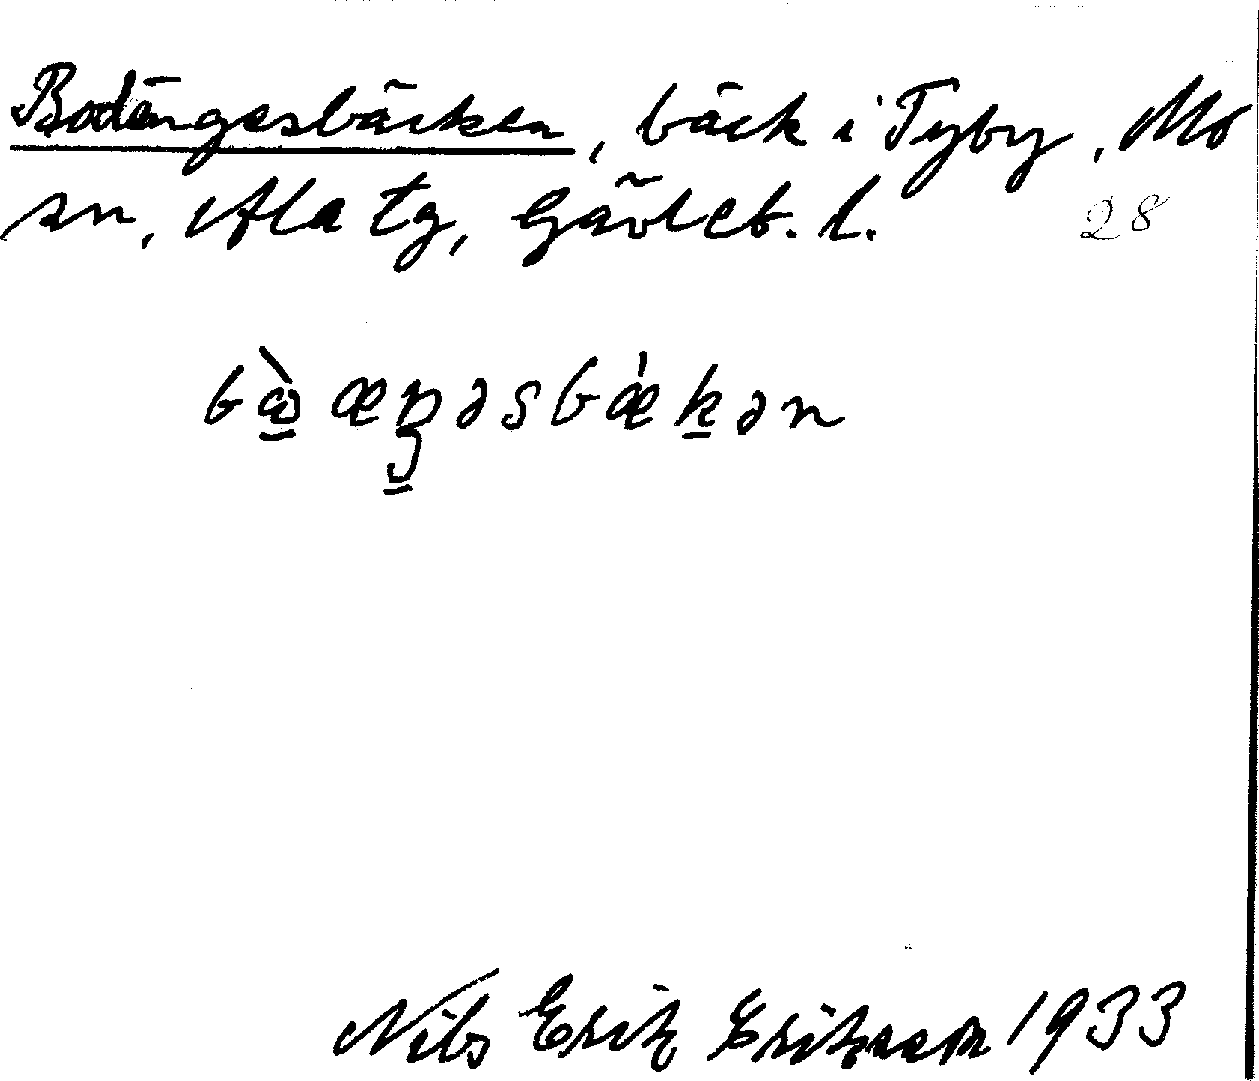 Bodängesbäcken, bäck i Tyby, Mo
sn, Ala tg, Gävleb. l. 28
bæŋəsbækən
Nils Erik Eriksson 1933